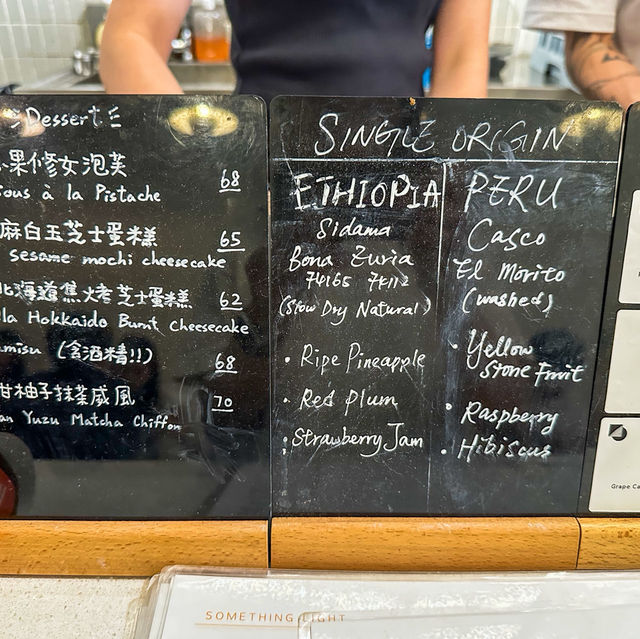 Dessert
果修女泡芙
68
ous à la Pistache
麻白玉芝士蛋糕
65
sesame mochi cheesecake
北海道焦烤芝士蛋糕
62
la Hokkaido Burnt Cheesecake
misu (含酒精!!)
68
柑柚子抹茶戚風
70
an Yuzu Matcha Chiffon
SINGLE ORIGIN
ETHIOPIA
Sidama
Bona Zuria
74165 74112
(Slow Dry Natural)
• Ripe Pineapple
• Red plum
• Strawberry Jam
PERU
Casco
El Morito
(washed)
• Yellow
Stone Fruit
• Raspberry
• Hibiscus
Grape Ca
SOMETHING LIGHT